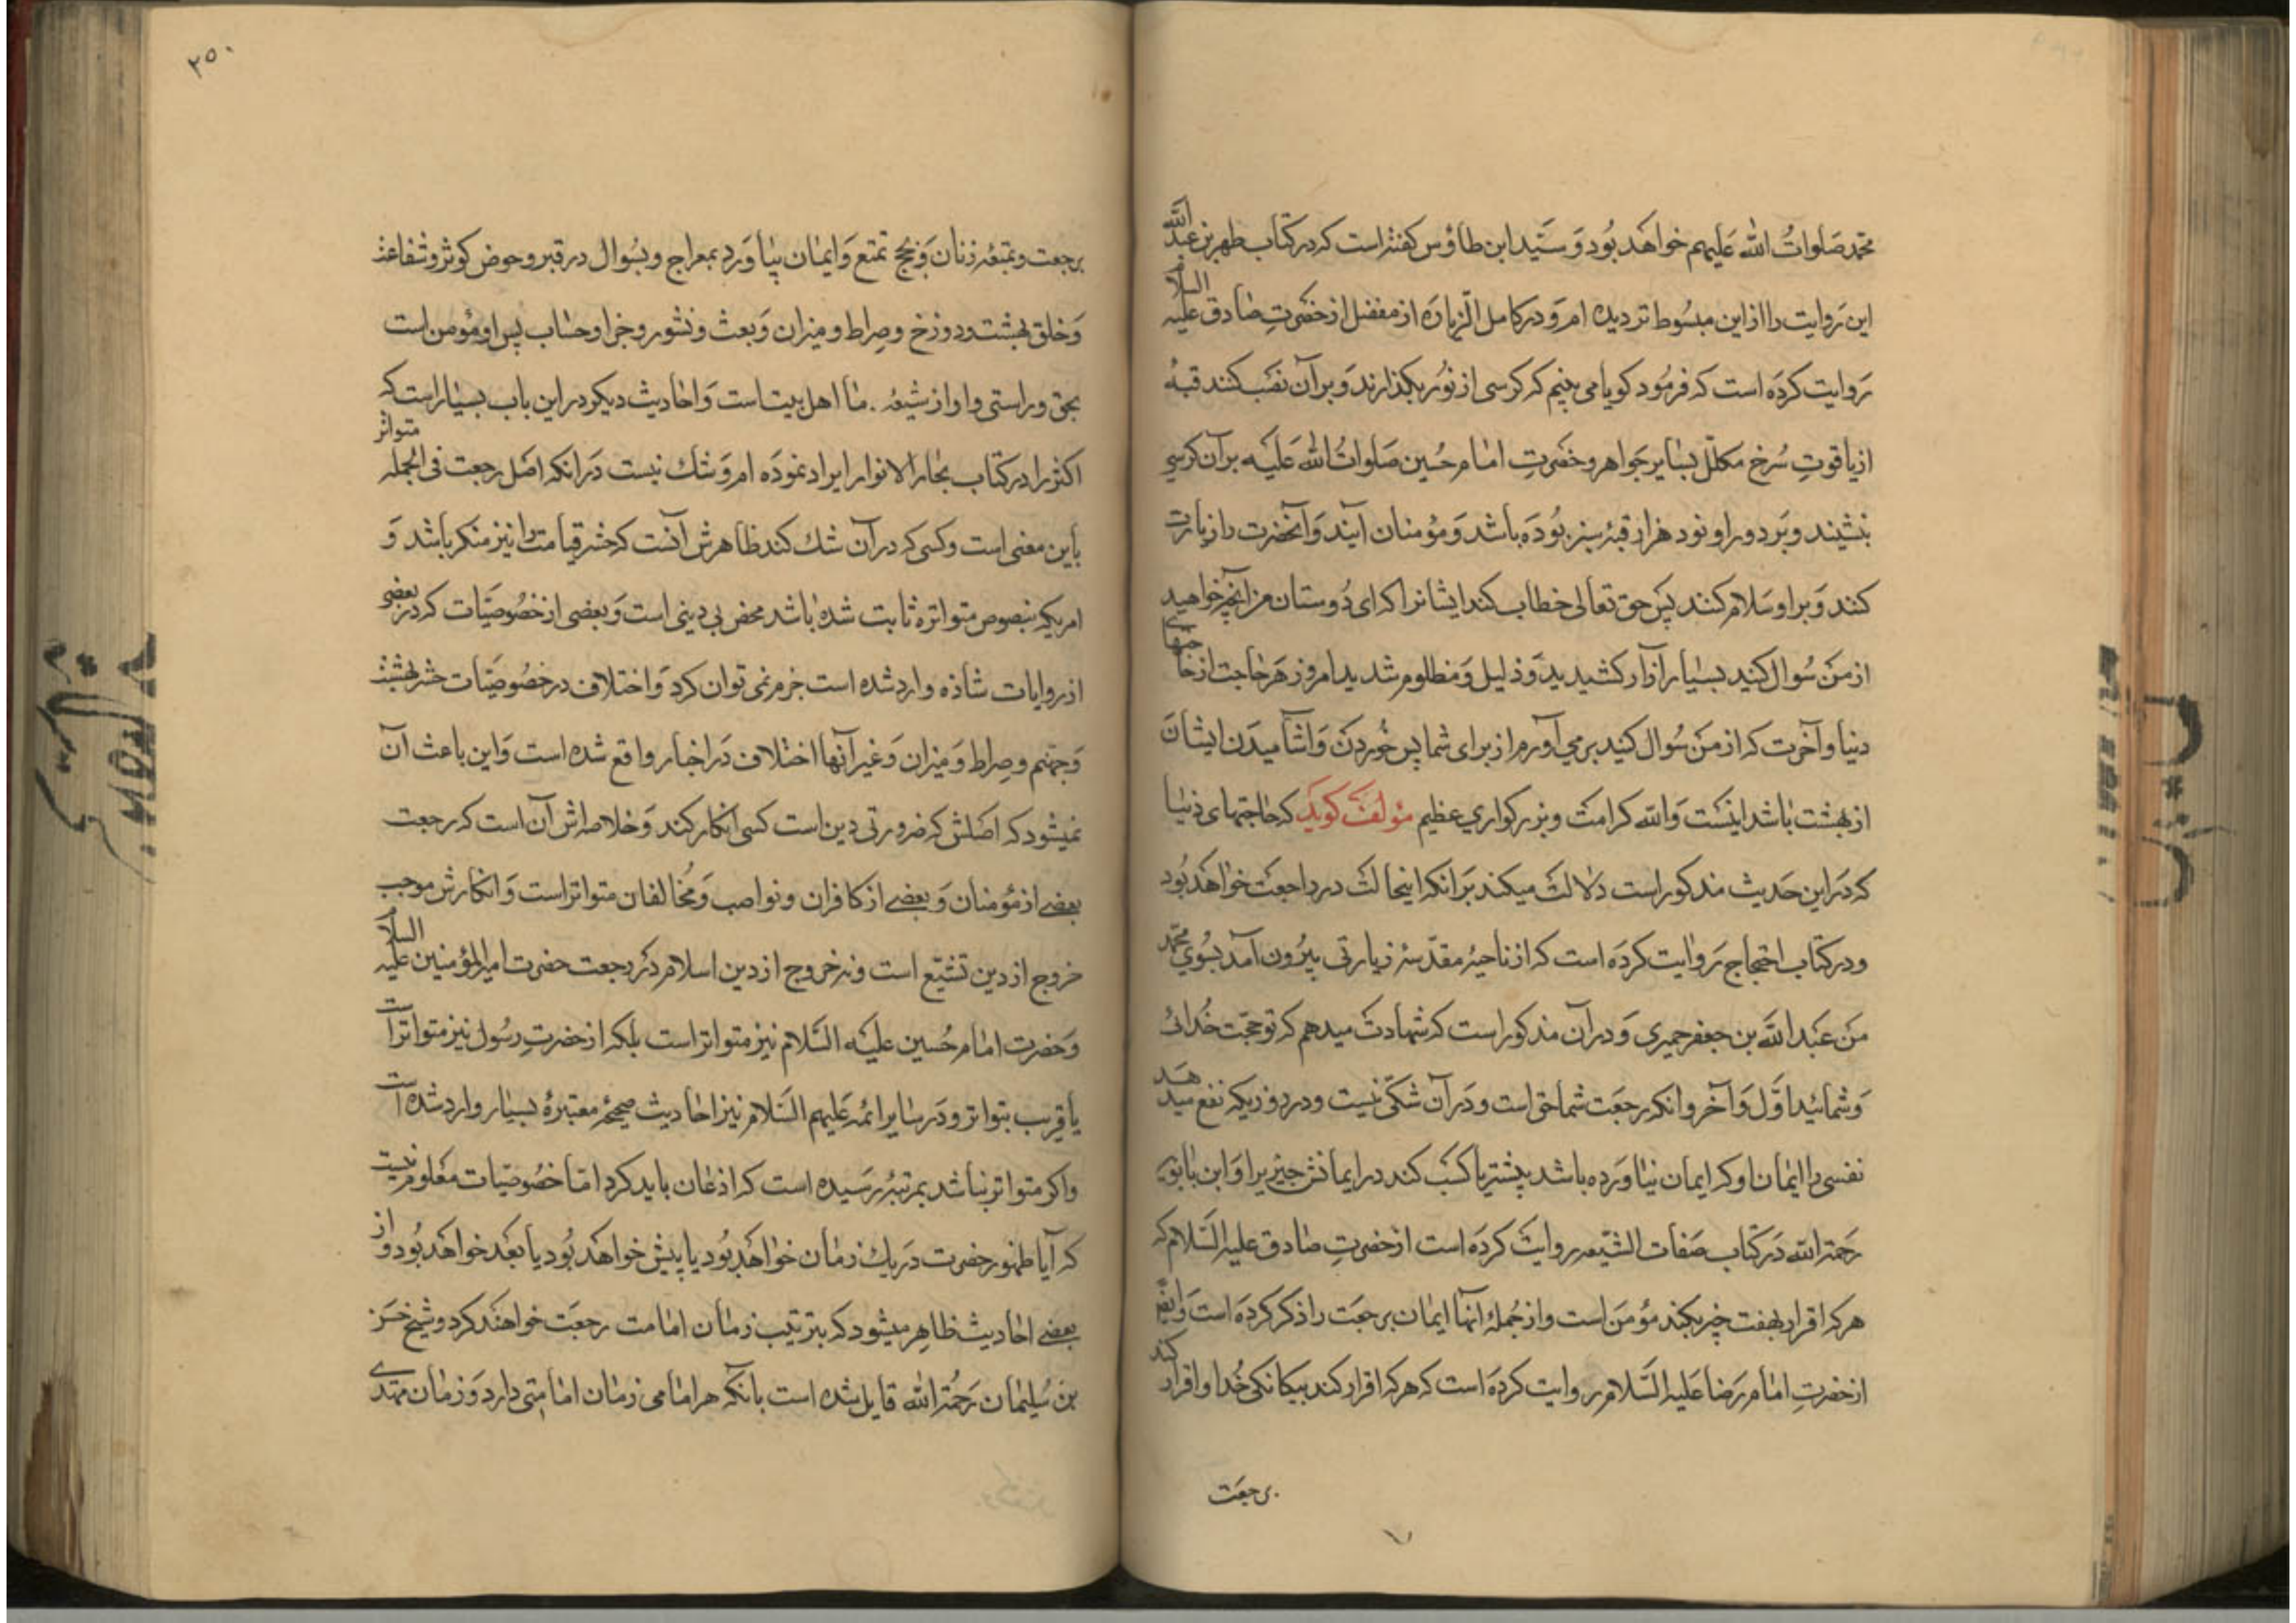 محمد صلوات الله علیهم خواهد بود و سید ابن طاؤس گفته است که در کتاب طهر بن عبد الله
این روایت را از این مبسوط تر دیده ام و در کامل الزیاره از مفضل از حضرت صادق علیه السلام
روایت کرده است که فرمود گویا می بینم که کرسی از نور بگذارند و بر آن نصب کنند قبهٔ
از یاقوت سرخ مکلّل بسایر جواهر و حضرت امام حسین صلوات الله علیه بر آن کرسی
بنشیند و بر دور او نود هزار قبهٔ سبز بوده باشد و مؤمنان آیند و آنحضرت را زیارت
کنند و بر او سلام کنند پس حق تعالی خطاب کند ایشانرا که ای دوستان من آنچه خواهید
از من سوال کنید بسیار آزار کشیدید و ذلیل و مظلوم شدید امروز هر حاجت از حاجتهای
دنیا و آخرت که از من سوال کنید بر می آورم از برای شما پس خوردن و اشامیدن ایشان
از بهشت باشد اینست والله کرامت و بزرکواری عظیم مؤلف کوید که حاجتهای دنیا
که در این حدیث مذکور است دلالت میکند بر انکه اینحالت در رجعت خواهد بود
و در کتاب احتجاج روایت کرده است که از ناحیهٔ مقدّسهٔ زیارتی بیرون آمد بسوی محمد
من عبد الله بن جعفر حمیری و در آن مذکور است که شهادت میدهم که تو حجت خدائی
و شمائید اوّل و آخر و انکه رجعت شما حق است و در آن شکی نیست و در روزیکه نفع میدهد
نفسی را ایمان او که ایمان نیاورده باشد پیشتر یا کسب کند در ایمانش چیزیرا و ابن بابویه
رحمة الله در کتاب صفات الشیعه روایت کرده است از حضرت صادق علیه السلام که
هر که اقرار بهفت چیز بکند مؤمن است و از جملهٔ آنها ایمان برجعت را ذکر کرده است و ایضا
از حضرت امام رضا علیه السلام روایت کرده است که هر که اقرار کند بیکانکی خدا و اقرار کند
برجعت
۲۵۰
برجعت و بمتعهٔ زنان و بحج تمتع و ایمان بیاورد بمعراج و بسوال در قبر و حوض کوثر و شفاعت
و خلق بهشت و دوزخ و صراط و میزان و بعث و نشور و جزا و حساب پس او مؤمن است
بحق و راستی و او از شیعهٔ ما اهل بیت است و احادیث دیکر در این باب بسیار است که
اکثر را در کتاب بحار الانوار ایراد نموده ام و شک نیست در انکه اصل رجعت فی الجمله متواتر
باین معنی است و کسی که در آن شک کند ظاهرش آنست که حشر قیامت را نیز منکر باشد و
امریکه بنصوص متواتره ثابت شده باشد محض بی دینی است و بعضی از خصوصیّات که در بعضی
از روایات شاذه وارد شده است جزم نمی توان کرد و اختلاف در خصوصیّات حشر بهشت
و جهنم و صراط و میزان و غیر آنها اختلاف در اخبار واقع شده است و این باعث آن
نمیشود که اصلش که ضرورتی دین است کسی انکار کند و خلاصه اش آن است که رجعت
بعضی از مؤمنان و بعضی از کافران و نواصب و مخالفان متواتر است و انکارش موجب
خروج از دین تشیّع است و نه خروج از دین اسلام و رجعت حضرت امیر المؤمنین علیه السلام
و حضرت امام حسین علیه السلام نیز متواتر است بلکه از حضرت رسول نیز متواتر است
یا قریب بتواتر و در سایر ائمه علیهم السلام نیز احادیث صحیحهٔ معتبرهٔ بسیار وارد شده است
و اکر متواتر نباشد بمرتبهٔ رسیده است که اذعان باید کرد امّا خصوصیّات معلوم نیست
که آیا ظهور حضرت در یک زمان خواهد بود یا پیش خواهد بود یا بعد خواهد بود و از
بعضی احادیث ظاهر میشود که بترتیب زمان امامت رجعت خواهند کرد و شیخ حسن
بن سلیمان رحمة الله قایل شده است بانکه هر امامی زمان امامتی دارد و زمان مهدی